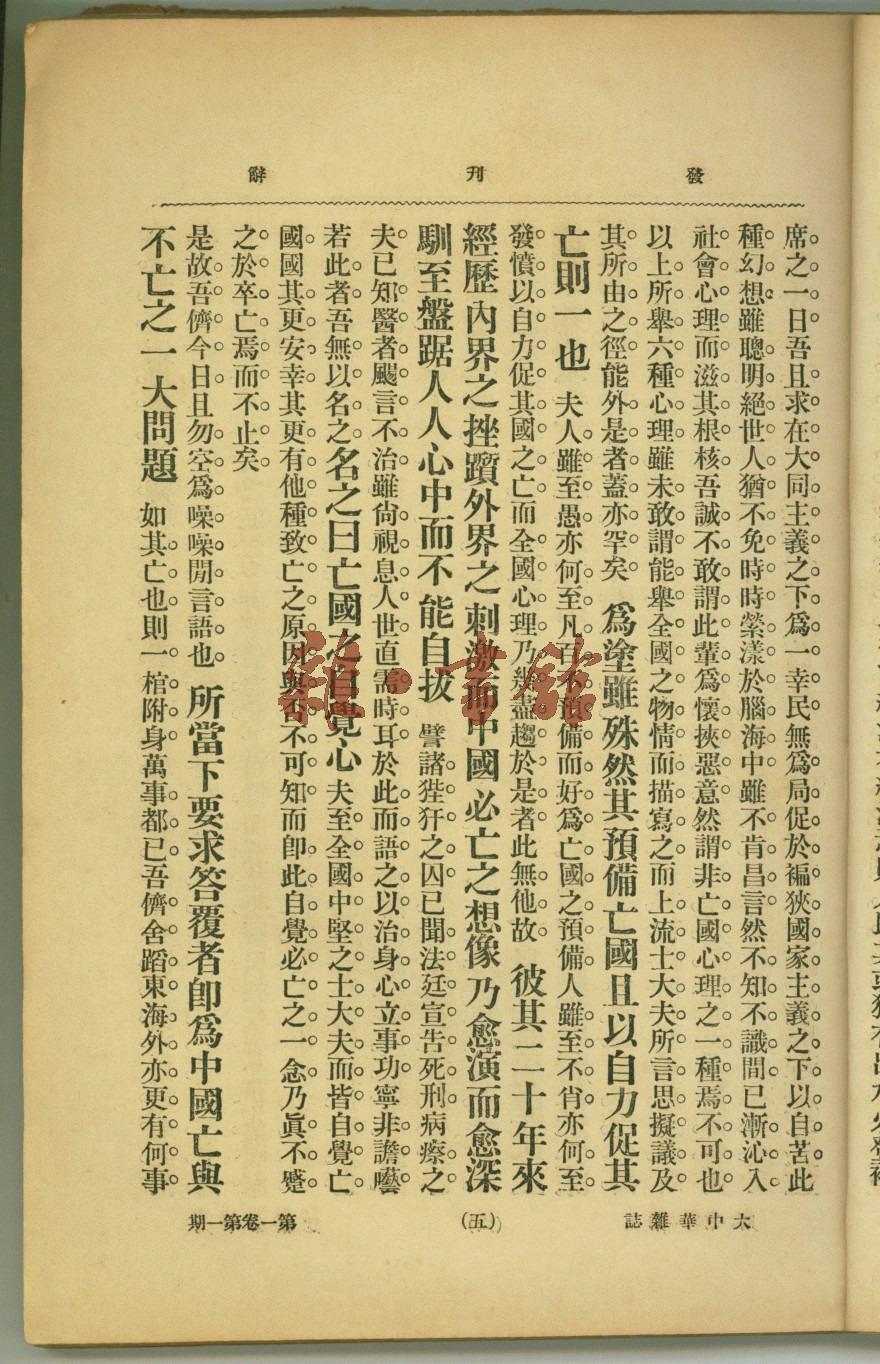 發刊辭
席之一日吾且求在大同主義之下爲一幸民無爲局促於褊狹國家主義之下以自苦此
種幻想雖聰明絕世人猶不免時時縈漾於腦海中雖不肯昌言然不知不識間已漸沁入
社會心理而滋其根核吾誠不敢謂此輩爲懷挾惡意然謂非亡國心理之一種焉不可也
以上所舉六種心理雖未敢謂能舉全國之物情而描寫之而上流士大夫所言思擬議及
其所由之徑能外是者蓋亦罕矣 爲塗雖殊然其預備亡國且以自力促其
亡則一也 夫人雖至愚亦何至凡百不預備而好爲亡國之預備人雖至不肖亦何至
發憤以自力促其國之亡而全國心理乃幾盡趨於是者此無他故 彼其二十年來
經歷內界之挫躓外界之刺激而中國必亡之想像乃愈演而愈深
馴至盤踞人人心中而不能自拔 譬諸狴犴之囚已聞法廷宣告死刑病瘵之
夫已知醫者颺言不治雖尙視息人世直需時耳於此而語之以治身心立事功寧非譫囈
若此者吾無以名之名之曰亡國之自覺心夫至全國中堅之士大夫而皆自覺亡
國國其更安幸其更有他種致亡之原因與否不可知而卽此自覺必亡之一念乃眞不蹙
之於卒亡焉而不止矣
是故吾儕今日且勿空爲噪噪閒言語也 所當下要求答覆者卽爲中國亡與
不亡之一大問題 如其亡也則一棺附身萬事都已吾儕舍蹈東海外亦更有何事
大中華雜誌
(五)
第一卷第一期